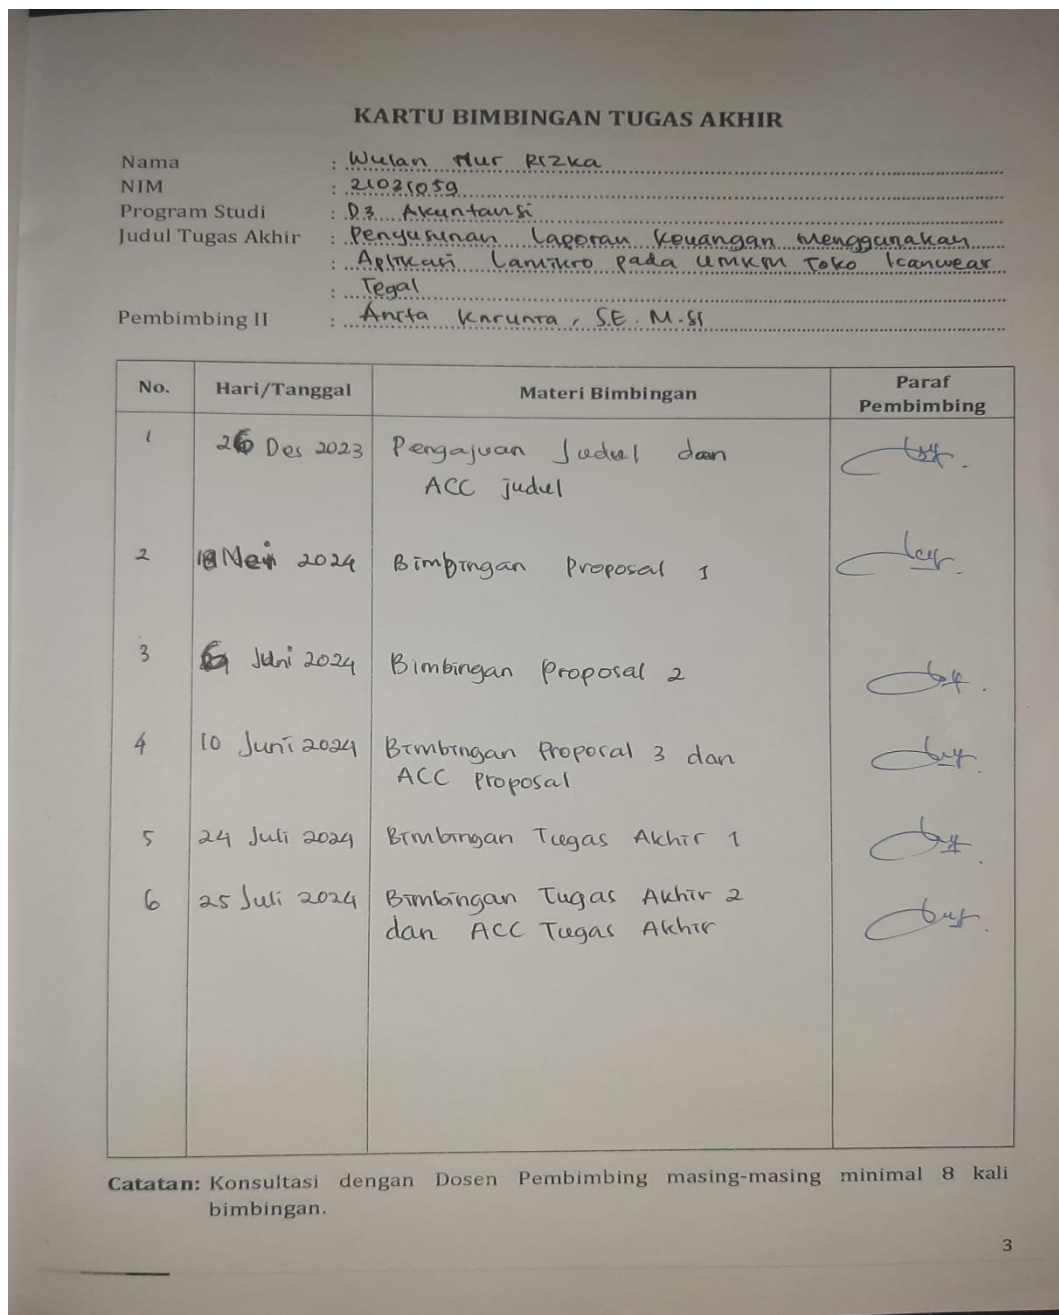 KARTU BIMBINGAN TUGAS AKHIR
Nama : Wulan Nur Rizka
NIM : 21031059
Program Studi : D3 Akuntansi
Judul Tugas Akhir : Penyusunan Laporan Keuangan Menggunakan
: Aplikasi Lamikro pada UMKM Toko Icanwear
: Tegal
Pembimbing II : Anita Karunia, S.E. M.Si
No. Hari/Tanggal Materi Bimbingan Paraf Pembimbing
1 26 Des 2023 Pengajuan Judul dan
ACC judul
2 18 Mei 2024 Bimbingan Proposal 1
3 Juni 2024 Bimbingan Proposal 2
4 10 Juni 2024 Bimbingan Proposal 3 dan
ACC Proposal
5 24 Juli 2024 Bimbingan Tugas Akhir 1
6 25 Juli 2024 Bimbingan Tugas Akhir 2
dan ACC Tugas Akhir
Catatan: Konsultasi dengan Dosen Pembimbing masing-masing minimal 8 kali
bimbingan.
3